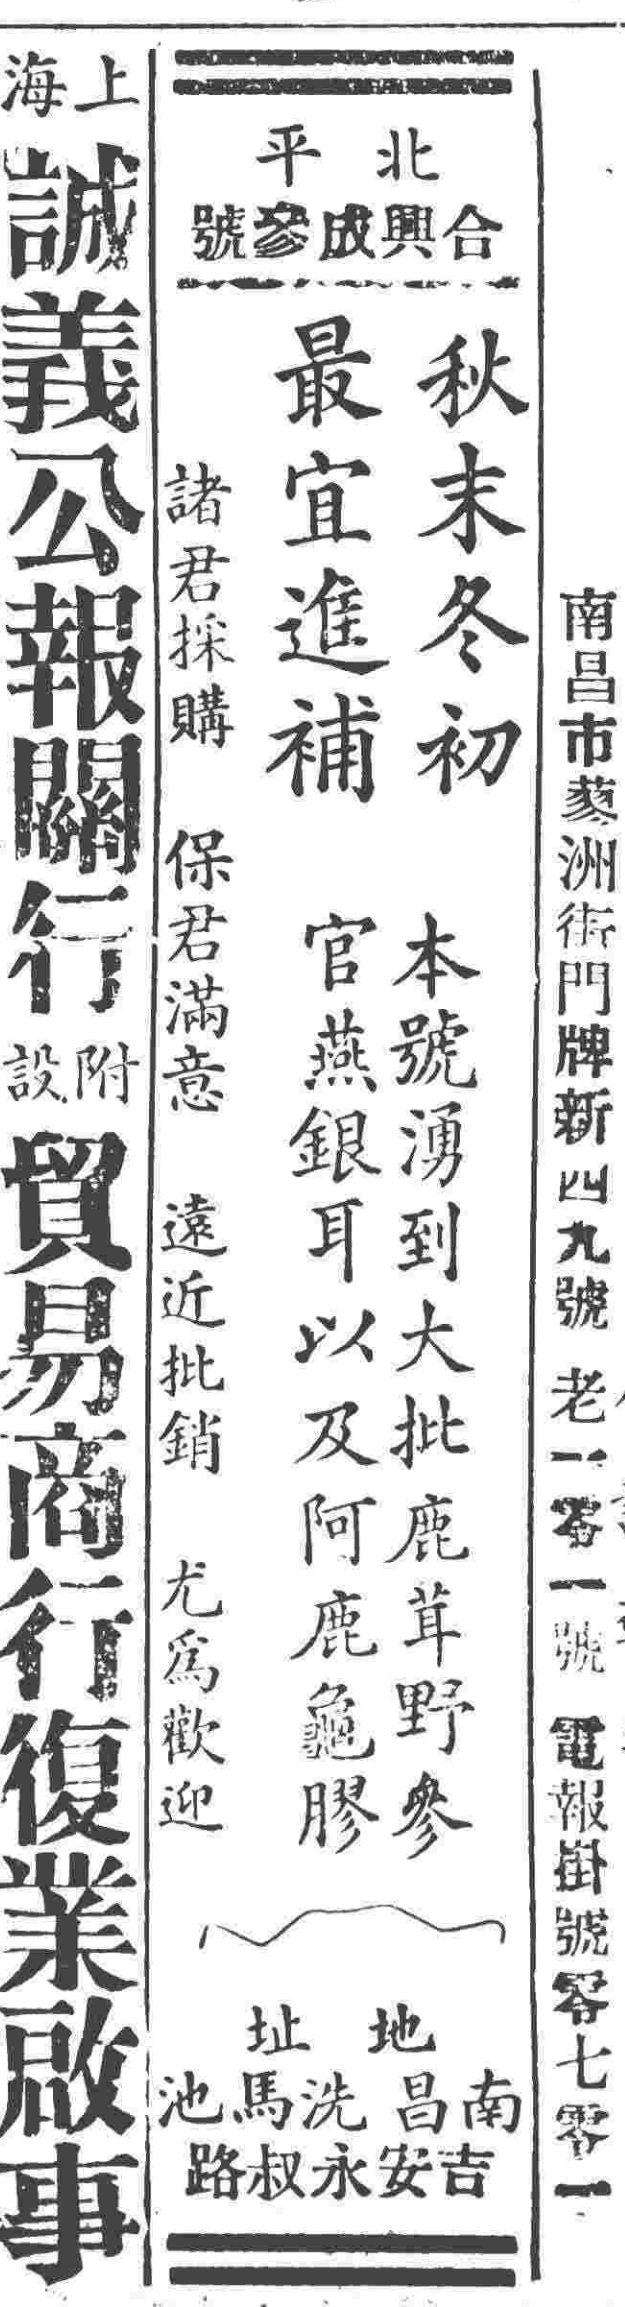 南昌市蓼洲街門牌新四九號 老一零一號 電報掛號零七零一
北平
合興成參號
秋末冬初
最宜進補
本號湧到大批鹿茸野參
官燕銀耳以及阿鹿龜膠
諸君採購 保君滿意 遠近批銷 尤爲歡迎
地址
南昌洗馬池
吉安永叔路
上海
誠義公報關行
附設
貿易商行復業啟事